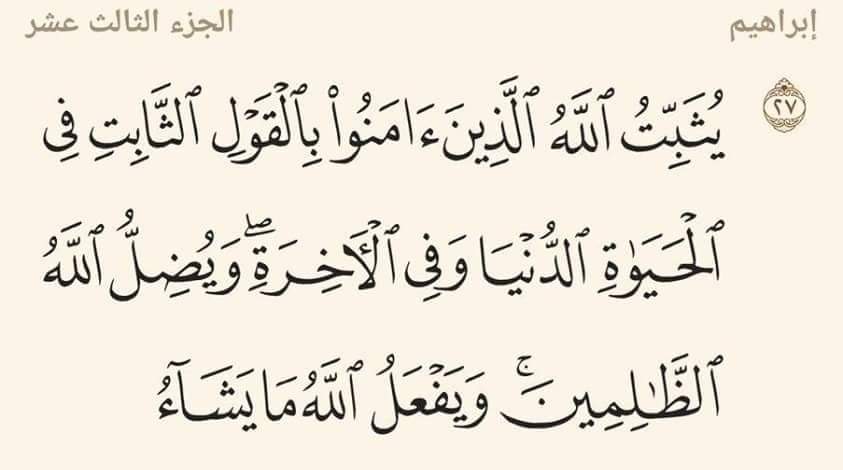 إبراهيم الجزء الثالث عشر
٢٧ يُثَبِّتُ ٱللَّهُ ٱلَّذِينَ ءَامَنُوا۟ بِٱلْقَوْلِ ٱلثَّابِتِ فِى
ٱلْحَيَوٰةِ ٱلدُّنْيَا وَفِى ٱلْـَٔاخِرَةِ ۖ وَيُضِلُّ ٱللَّهُ
ٱلظَّـٰلِمِينَ ۚ وَيَفْعَلُ ٱللَّهُ مَا يَشَآءُ